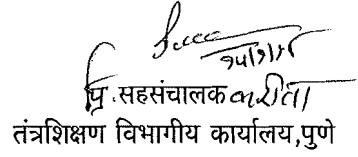 प्र. सहसंचालक करीता
तंत्रशिक्षण विभागीय कार्यालय, पुणे